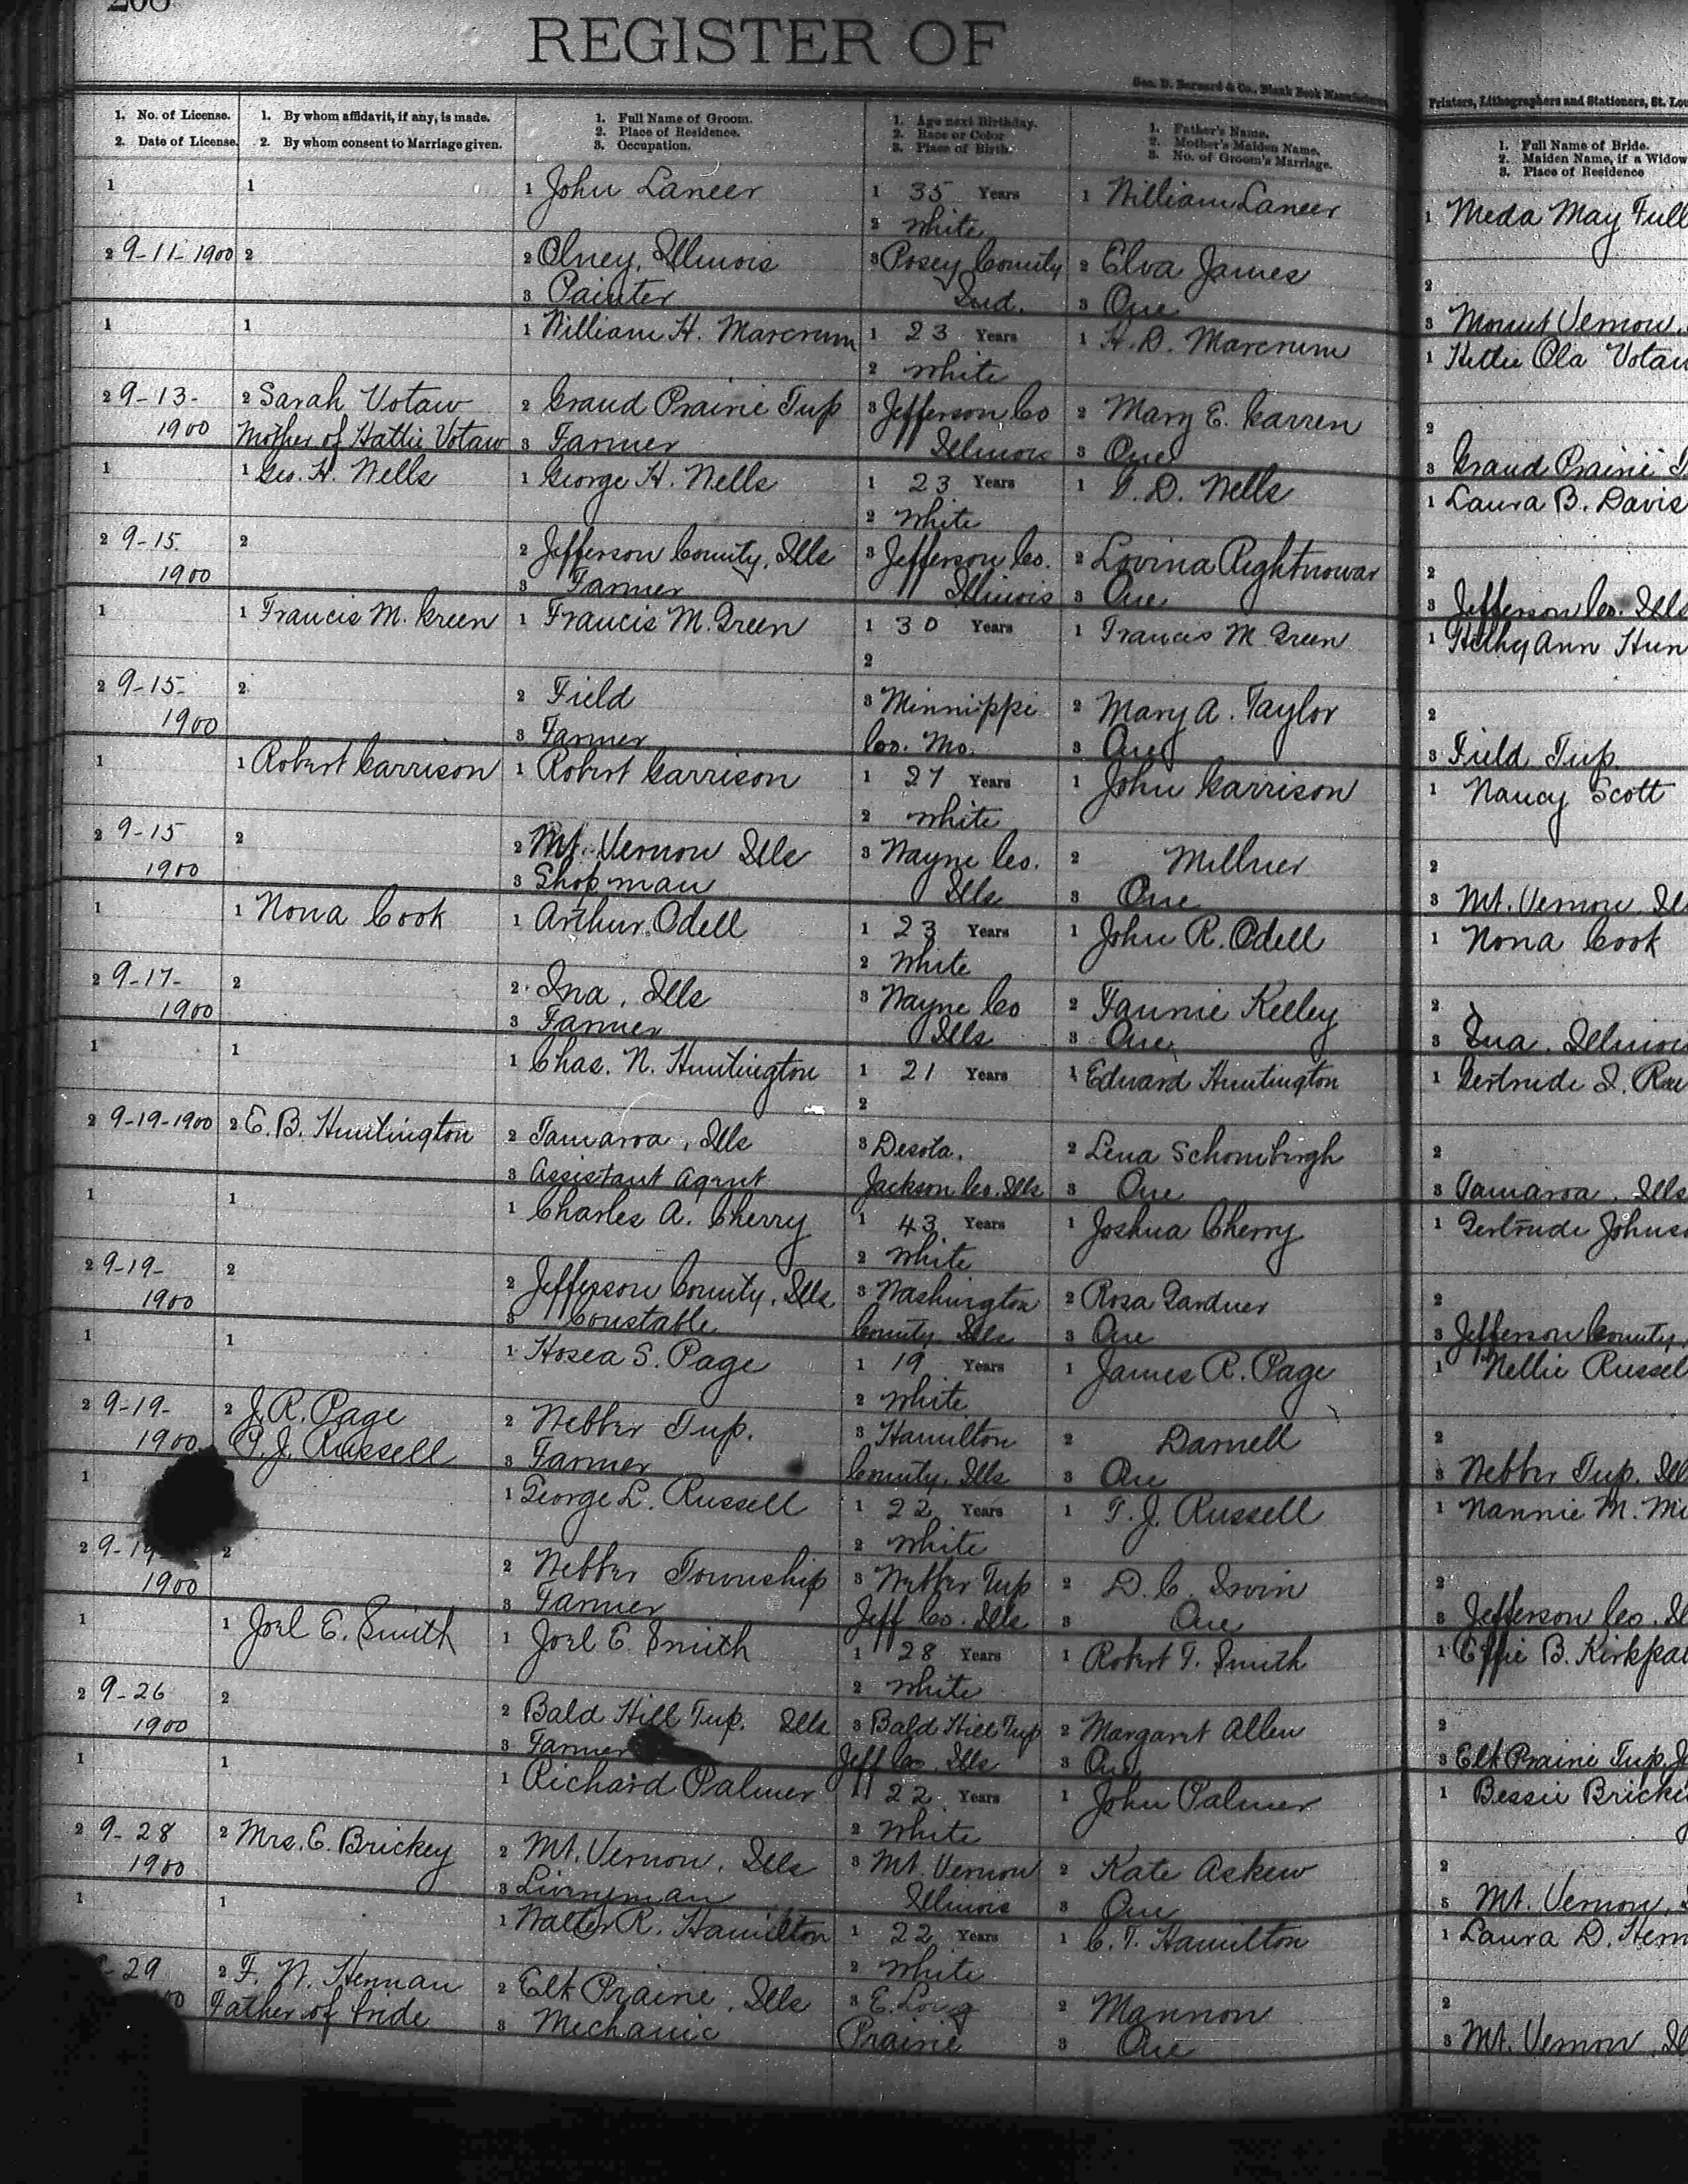 208
REGISTER OF
Geo. D. Barnard & Co., Blank Book Manufacturers,
Printers, Lithographers and Stationers, St. Lou
1. No. of License.
2. Date of License.
1. By whom affidavit, if any, is made.
2. By whom consent to Marriage given.
1. Full Name of Groom.
2. Place of Residence.
3. Occupation.
1. Age next Birthday.
2. Race or Color
3. Place of Birth.
1. Father's Name.
2. Mother's Maiden Name.
3. No. of Groom's Marriage.
1. Full Name of Bride.
2. Maiden Name, if a Widow
3. Place of Residence
1 1 1 John Lancer 1 35 Years 1 William Lancer 1 Meda May Full
2 White
2 9-11-1900 2 2 Olney, Illinois 3 Posey County 2 Elva James 2
3 Painter Ind. 3 One 3 Mount Vernon,
1 1 1 William H. Marcrum 1 23 Years 1 H. D. Marcrum 1 Hettie Ola Votaw
2 White
2 9-13- 2 Sarah Votaw 2 Grand Prairie Twp 3 Jefferson Co 2 Mary E. Garren 2
1900 Mother of Hattie Votaw 3 Farmer Illinois 3 One 3 Grand Prairie T
1 1 Geo. H. Wells 1 George H. Wells 1 23 Years 1 D. Wells 1 Laura B. Davis
2 White
2 9-15 2 2 Jefferson County, Ills 3 Jefferson Co. 2 Lovina Rightnowar 2
1900 3 Farmer Illinois 3 One 3 Jefferson Co. Ills
1 1 Francis M. Green 1 Francis M. Green 1 30 Years 1 Francis M. Green 1 Ann Hun
2
2 9-15- 2 2 Field 3 Minnippi 2 Mary A. Taylor 2
1900 3 Farmer Co. Mo. 3 One 3 Field Twp
1 1 Robert Garrison 1 Robert Garrison 1 27 Years 1 John Garrison 1 Nancy Scott
2 White
2 9-15 2 2 Mt. Vernon Ills 3 Wayne Co. 2 Millner 2
1900 3 Shop man Ills 3 One 3 Mt. Vernon, Il
1 1 Nona Cook 1 Arthur Odell 1 23 Years 1 John R. Odell 1 Nona Cook
2 White
2 9-17- 2 2 Ina, Ills 3 Wayne Co 2 Fannie Kelley 2
1900 3 Farmer Ills 3 One 3 Ina, Illinois
1 1 1 Chas. N. Huntington 1 21 Years 1 Edward Huntington 1 Gertrude I. Roe
2
2 9-19-1900 2 E. B. Huntington 2 Tamaroa, Ills 3 Desota, 2 Lena Schomburgh 2
3 Assistant Agent Jackson Co. Ills 3 One 3 Tamaroa, Ills
1 1 1 Charles A. Cherry 1 43 Years 1 Joshua Cherry 1 Gertrude Johns
2 White
2 9-19- 2 2 Jefferson County, Ills 3 Washington 2 Rosa Gardner 2
1900 3 Constable County, Ills 3 One 3 Jefferson County,
1 1 1 Hosea S. Page 1 19 Years 1 James R. Page 1 Nellie Russel
2 White
2 9-19- 2 J. R. Page 2 Webber Twp. 3 Hamilton 2 Darnell 2
1900 T. J. Russell 3 Farmer County, Ills 3 One 3 Webber Twp. Ill
1 1 George L. Russell 1 22 Years 1 T. J. Russell 1 Nannie M. Mc
2 White
2 9-19- 2 2 Webber Township 3 Webber Twp 2 D. C. Irvin 2
1900 3 Farmer Jeff Co. Ills 3 One 3 Jefferson Co. Il
1 1 Joel E. Smith 1 Joel E. Smith 1 28 Years 1 Robert T. Smith 1 Effie B. Kirkpat
2 White
2 9-26 2 2 Bald Hill Twp. Ills 3 Bald Hill Twp 2 Margaret Allen 2
1900 3 Farmer Jeff Co. Ills 3 One 3 Elk Prairie Twp. J
1 1 1 Richard Palmer 1 22 Years 1 John Palmer 1 Bessie Bricke
2 White
2 9-28 2 Mrs. E. Brickey 2 Mt. Vernon, Ills 3 Mt. Vernon 2 Kate Askew 2
1900 3 Liveryman Illinois 3 One 3 Mt. Vernon,
1 1 1 Walter R. Hamilton 1 22 Years 1 C. T. Hamilton 1 Laura D. Herm
2 White
-29 2 F. N. Herman 2 Elk Prairie, Ills 3 E. Long 2 Mannon 2
00 Father of bride 3 Mechanic Prairie 3 One 3 Mt. Vernon, Il